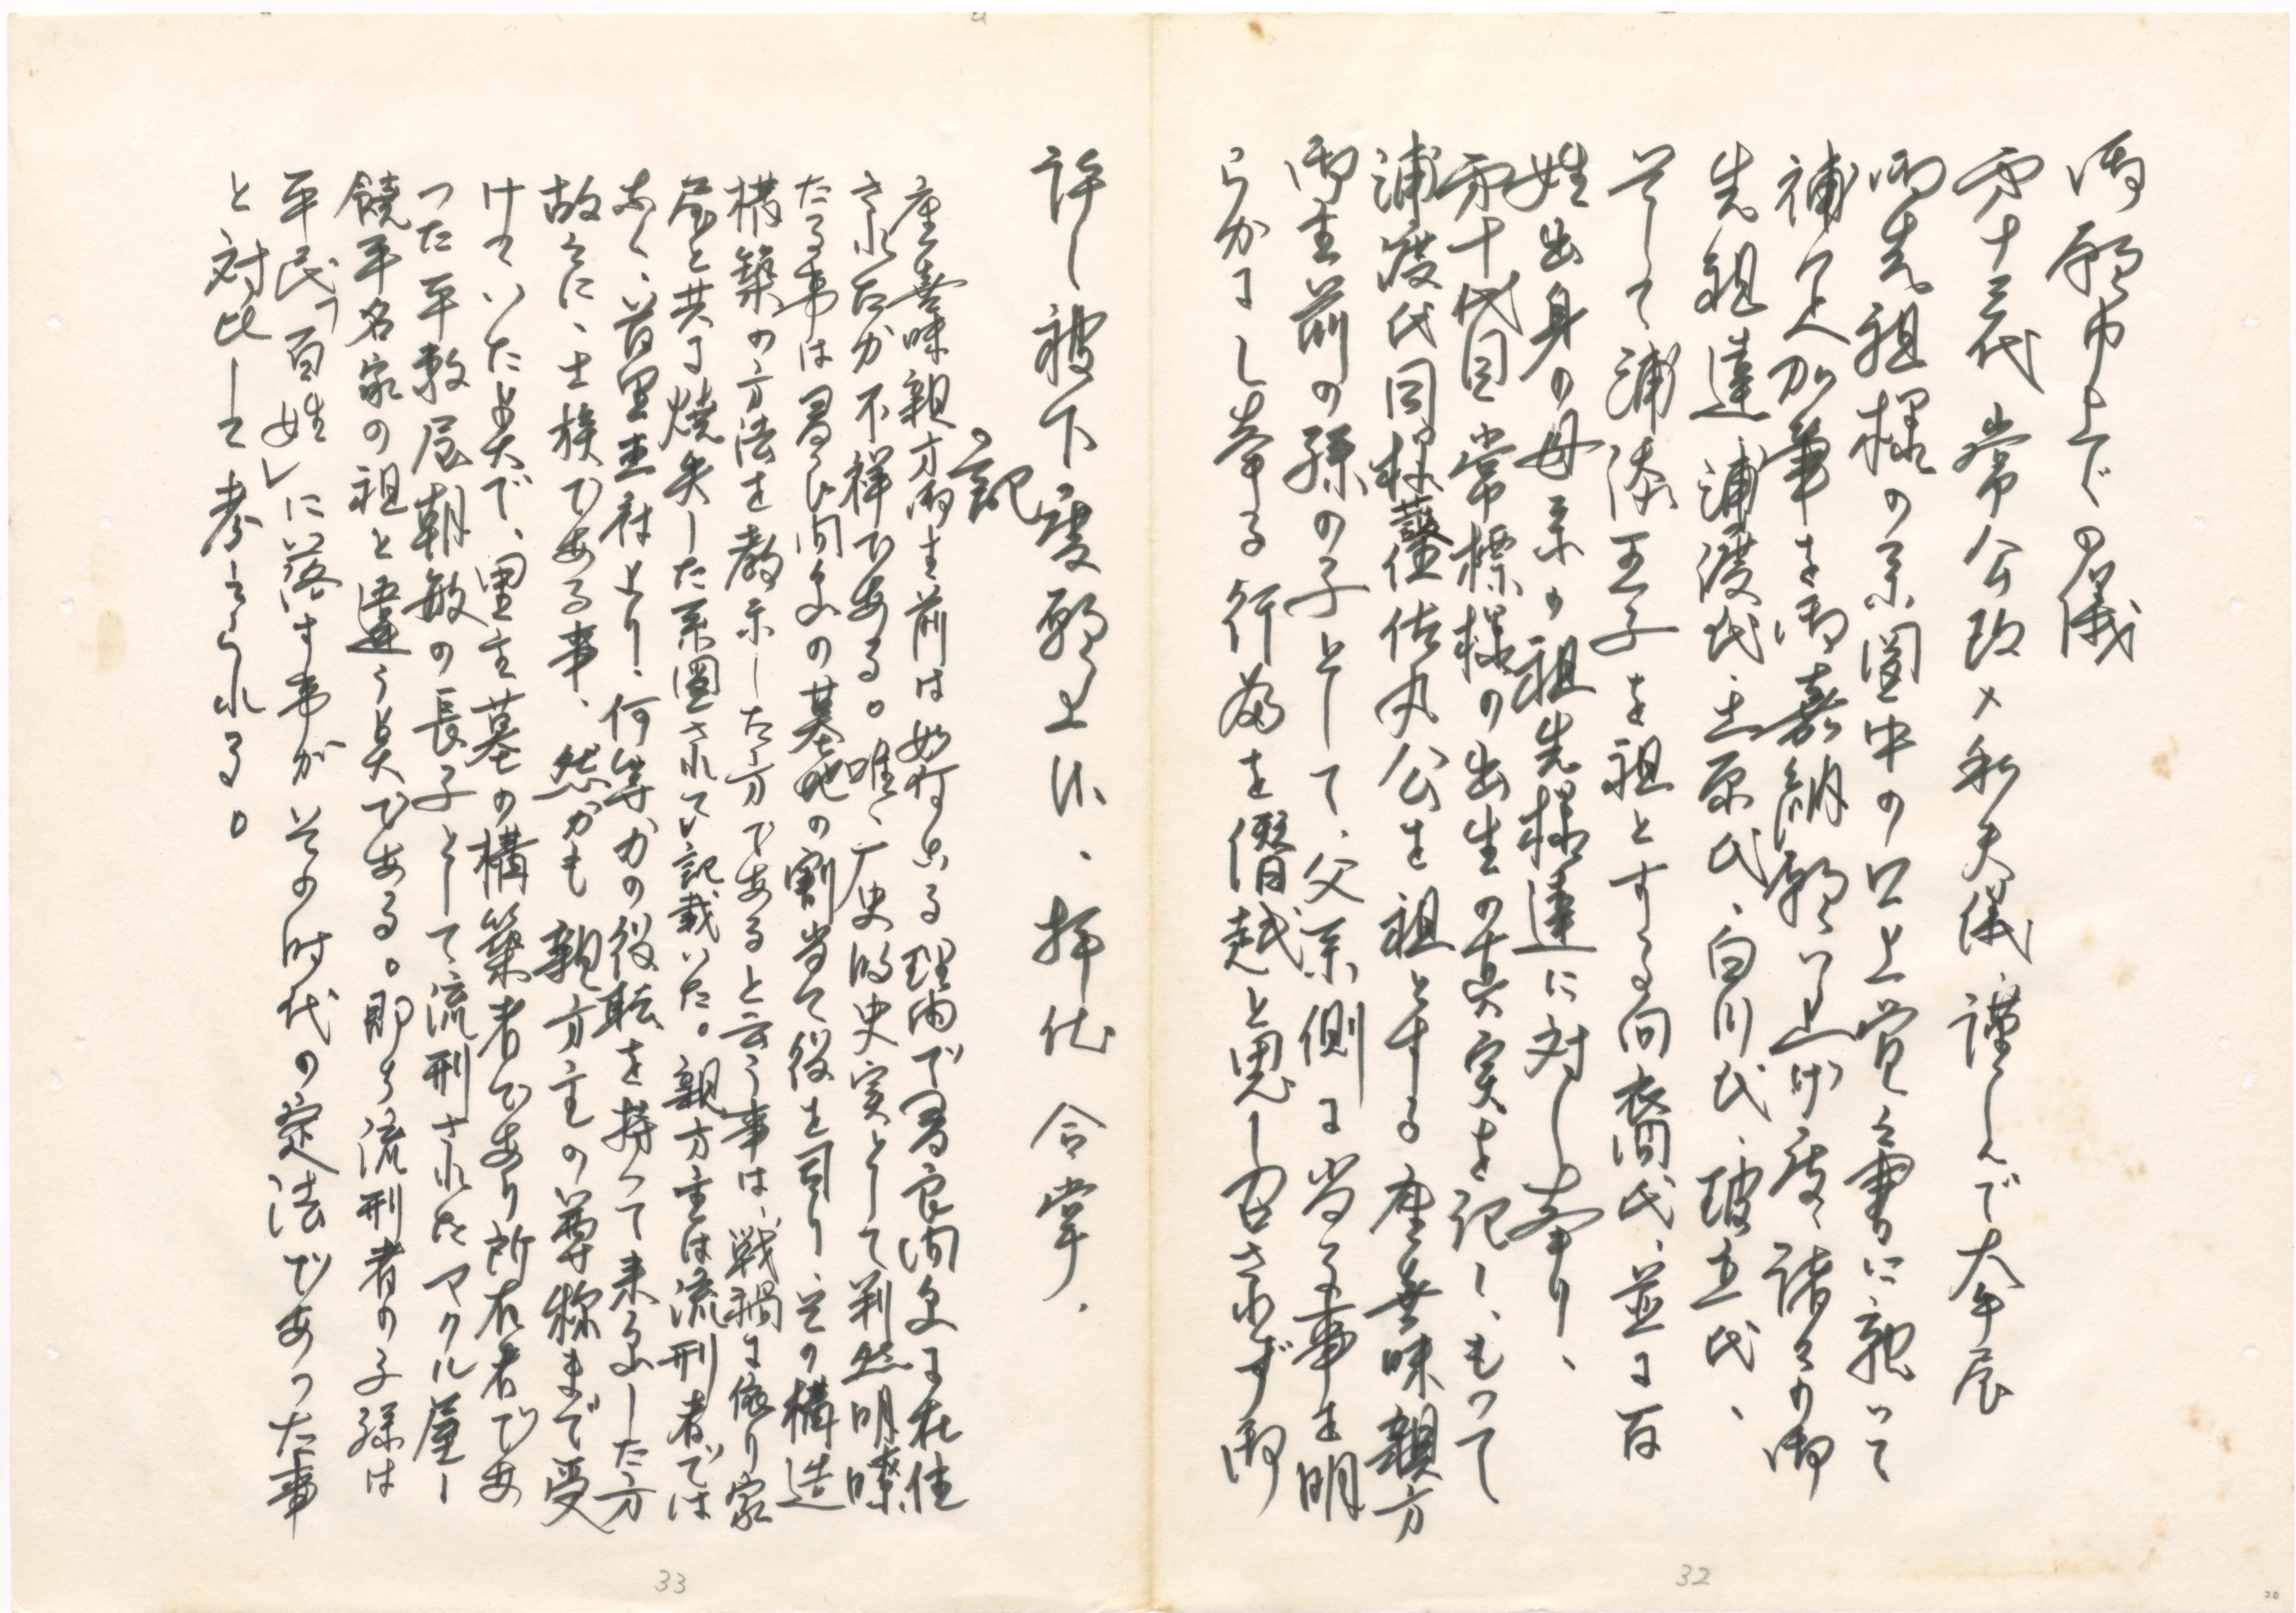 御願申上での儀
第十三代 常公改メ和夫儀、謹しんで大午辰
御先祖様の系図中の口上覚え書に融って
補足加筆を御嘉納願い上げ度、諸々の御
先祖達 浦渡氏、土原氏、白川氏、玻立氏、
そして浦添王子を祖とする向裔氏、並に百
姓出身の母系の祖先様達に対し奉り、
第十代目常標様の出生の真実を記し、もって
浦渡氏同様 佐久公を祖とする座喜味親方
御主前の孫の子として、父系側に当る事を明
らかにし奉る行為を僭越と思し召さず御
許し被下度願上候、拝伏 合掌.
記
座喜味親方御主前は如何なる理由で習良間島に在住
されたか不祥である。唯、歴史的史実として判然明瞭
たる事は習良間島の墓地の割当て役を司り、その構造
構築の方法を教示した方であると云う事は、戦禍に依り家
屋と共に焼失した系図されて記載いた。親方主は流刑者では
なく、首里王府より何等かの役転を持って来島した方
故に、士族である事、然かも親方主の尊称まで受
けていた点で、里主墓の構築者であり所在者であ
った平敷屋朝敏の長子として流刑されたマクル屋ー
饒平名家の祖と違う点である。即ち流刑者の子孫は
平民「百姓」に落す事がその時代の定法であった事
と対比して考えられる。
33
32
20